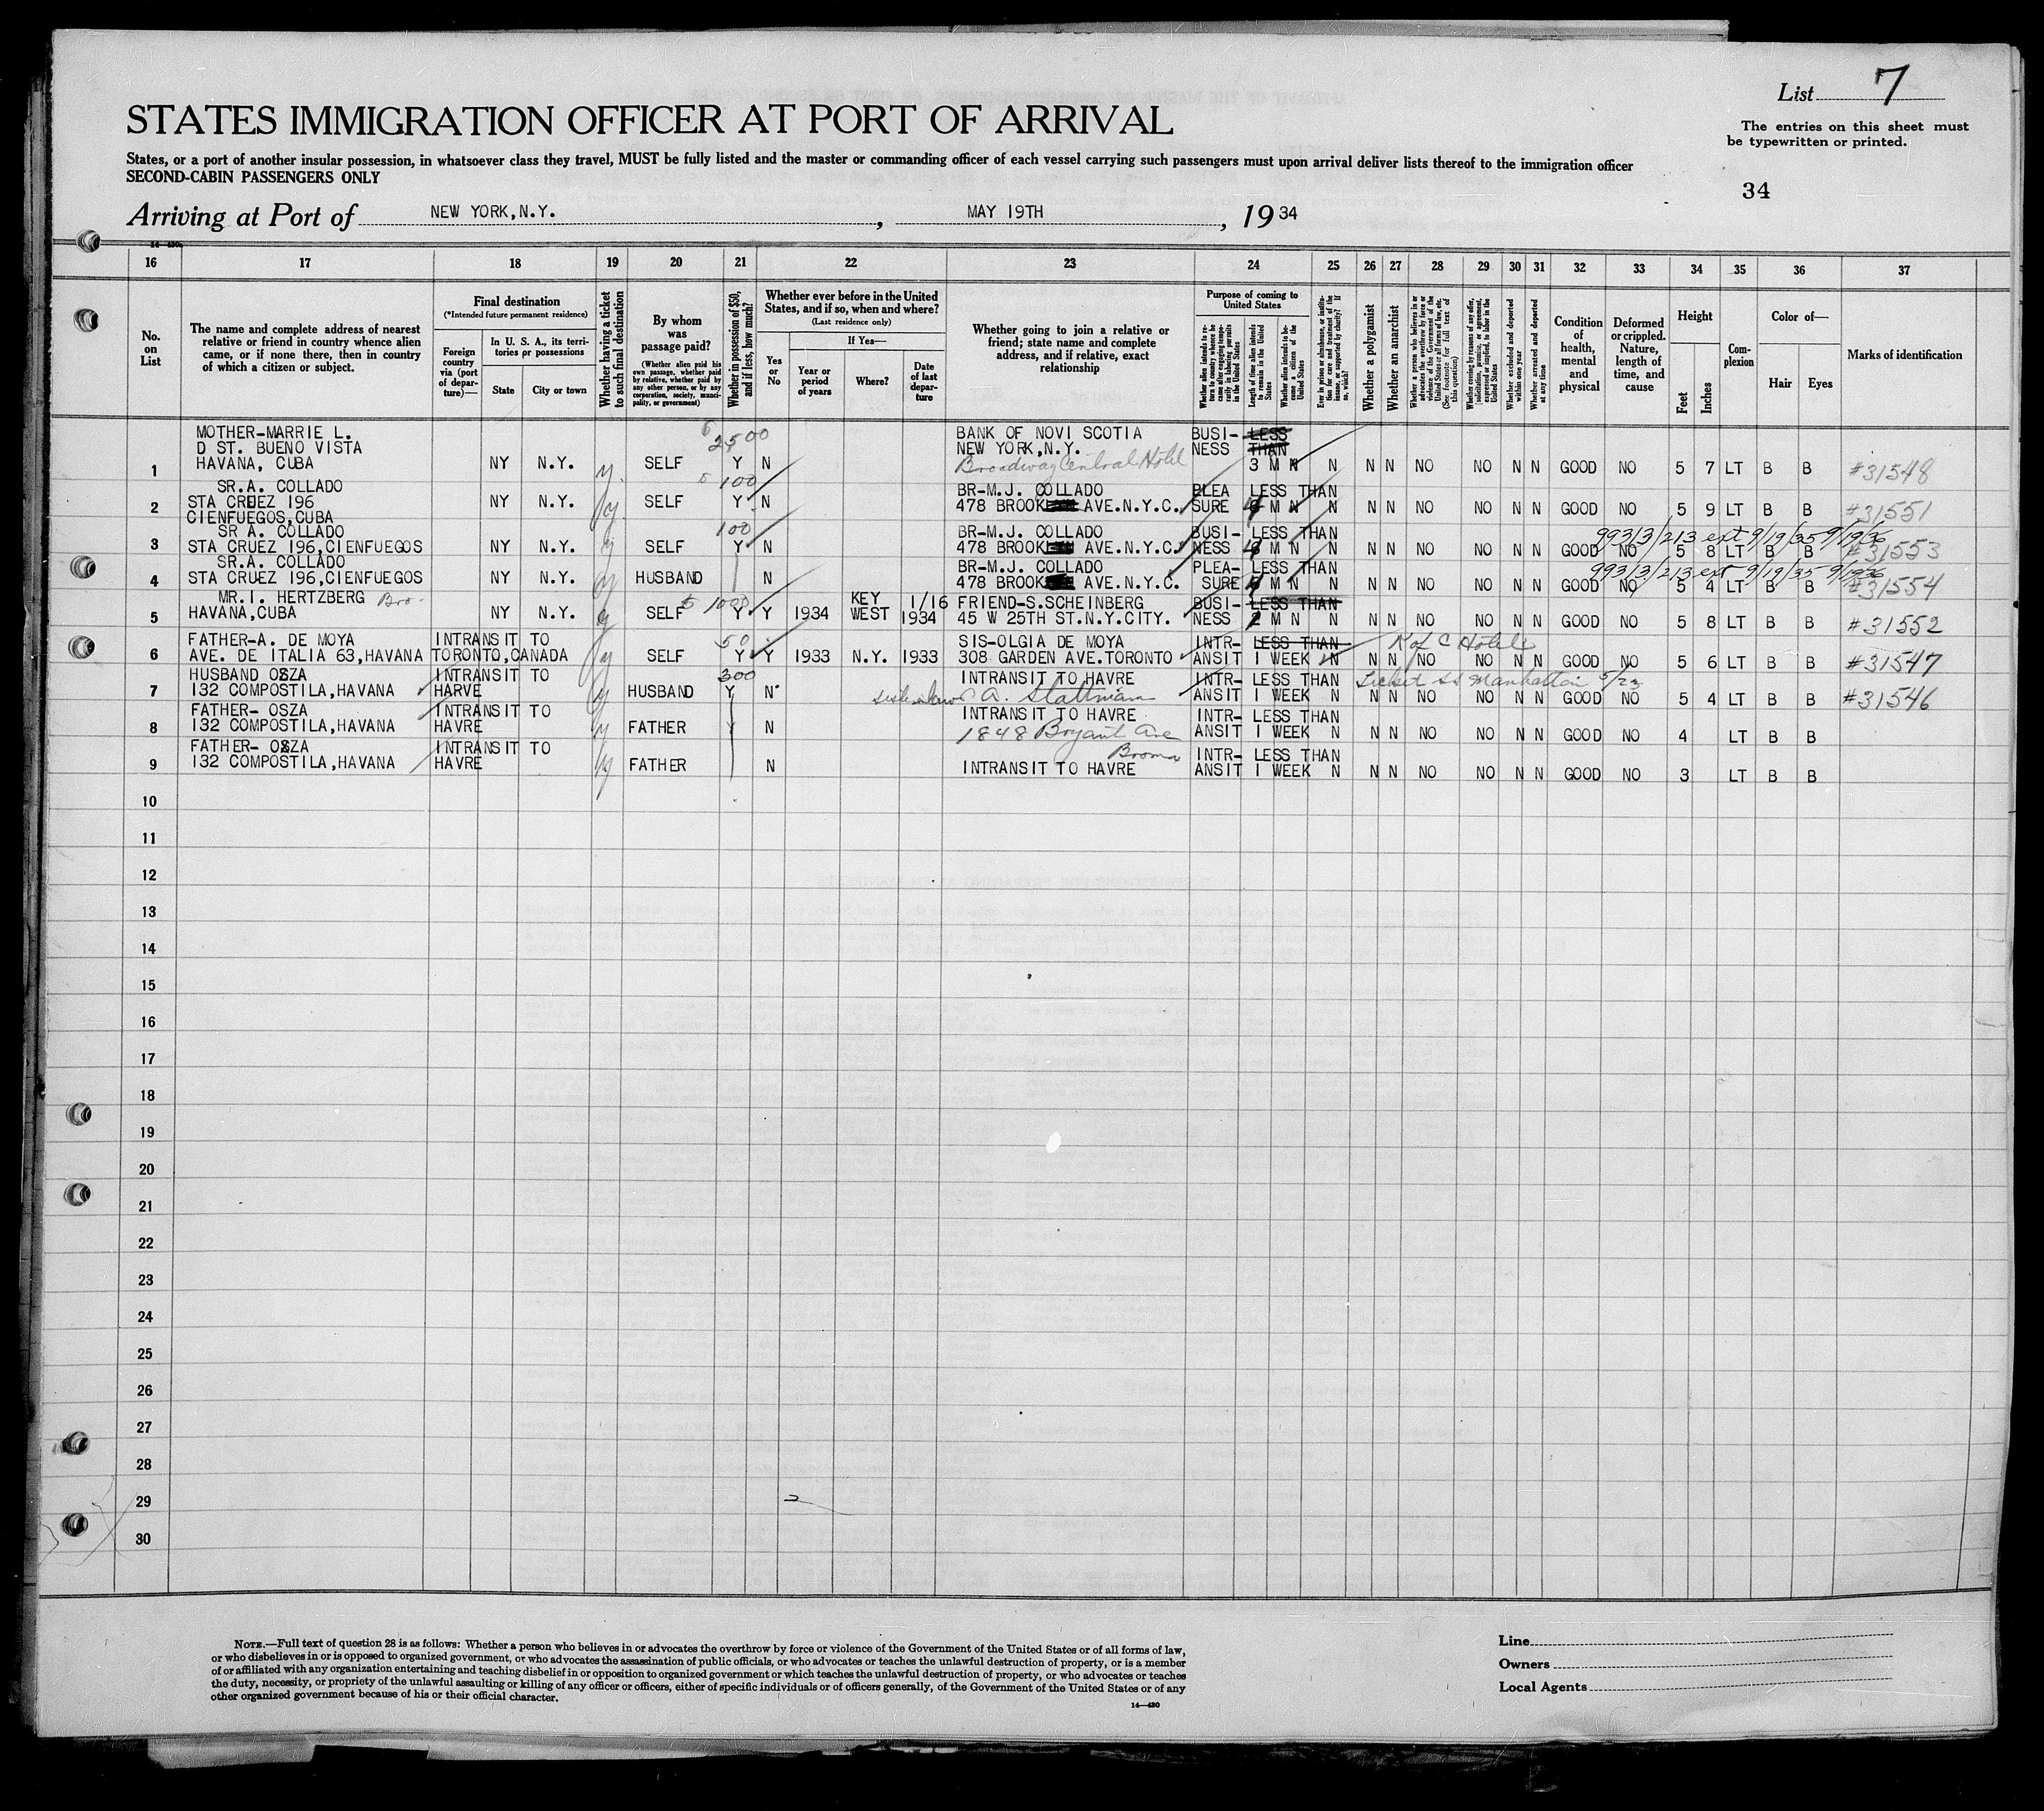 List 7
STATES IMMIGRATION OFFICER AT PORT OF ARRIVAL
The entries on this sheet must
be typewritten or printed.
States, or a port of another insular possession, in whatsoever class they travel, MUST be fully listed and the master or commanding officer of each vessel carrying such passengers must upon arrival deliver lists thereof to the immigration officer
SECOND-CABIN PASSENGERS ONLY
34
Arriving at Port of NEW YORK,N.Y. , MAY 19TH , 1934
16 17 18 19 20 21 22 23 24 25 26 27 28 29 30 31 32 33 34 35 36 37
No. on List
The name and complete address of nearest
relative or friend in country whence alien
came, or if none there, then in country
of which a citizen or subject.
Final destination
(*Intended future permanent residence)
Foreign country via (port of departure)—
In U. S. A., its territories or possessions
State City or town
Whether having a ticket to such final destination
By whom was passage paid?
(Whether alien paid his own passage, whether paid by relative, whether paid by any other person, or by any corporation, society, municipality, or government)
Whether in possession of $50, and if less, how much?
Whether ever before in the United
States, and if so, when and where?
(Last residence only)
Yes or No
If Yes—
Year or period of years
Where?
Date of last departure
Whether going to join a relative or
friend; state name and complete
address, and if relative, exact
relationship
Purpose of coming to United States
Whether alien intends to return to country whence he came after engaging temporarily in laboring pursuits in the United States
Length of time alien intends to remain in the United States
Whether alien intends to become a citizen of the United States
Ever in prison or almshouse, or institution for care and treatment of the insane, or supported by charity? If so, which?
Whether a polygamist
Whether an anarchist
Whether a person who believes in or advocates the overthrow by force or violence of the Government of the United States or all forms of law, etc. (See footnote for full text of this question)
Whether coming by reasons of any offer, solicitation, promise, or agreement, expressed or implied, to labor in the United States
Whether excluded and deported within one year
Whether arrested and deported at any time
Condition of health, mental and physical
Deformed or crippled. Nature, length of time, and cause
Height
Feet Inches
Complexion
Color of—
Hair Eyes
Marks of identification
MOTHER-MARRIE L. 2500 BANK OF NOVI SCOTIA BUSI- LESS
D ST. BUENO VISTA NEW YORK,N.Y. NESS THAN
1 HAVANA, CUBA NY N.Y. y SELF Y N Broadway Central Hotel 3 M N N N N NO NO N N GOOD NO 5 7 LT B B #31548
SR.A. COLLADO 100 BR-M.J. COLLADO PLEA LESS THAN
2 STA CRUEZ 196 NY N.Y. y SELF Y N 478 BROOK AVE.N.Y.C. SURE M N N N N NO NO N N GOOD NO 5 9 LT B B #31551
CIENFUEGOS,CUBA
SR A. COLLADO 100 BR-M.J. COLLADO BUSI- LESS THAN 993/3/213 ext 9/19/35 9/19/36
3 STA CRUEZ 196,CIENFUEGOS NY N.Y. y SELF Y N 478 BROOK AVE.N.Y.C. NESS M N N N N NO NO N N GOOD NO 5 8 LT B B #31553
SR.A. COLLADO BR-M.J. COLLADO PLEA- LESS THAN 993/3/213 ext 9/19/35 9/19/36
4 STA CRUEZ 196,CIENFUEGOS NY N.Y. y HUSBAND N 478 BROOK AVE.N.Y.C. SURE M N N N N NO NO N N GOOD NO 5 4 LT B B #31554
MR.I. HERTZBERG Bro- KEY 1/16 FRIEND-S.SCHEINBERG BUSI- LESS THAN
5 HAVANA,CUBA NY N.Y. y SELF Y Y 1934 WEST 1934 45 W 25TH ST.N.Y.CITY. NESS 2 M N N N N NO NO N N GOOD NO 5 8 LT B B #31552
FATHER-A. DE MOYA INTRANSIT TO 50 SIS-OLGIA DE MOYA INTR- LESS THAN K of C Hotel
6 AVE. DE ITALIA 63,HAVANA TORONTO,CANADA y SELF Y Y 1933 N.Y. 1933 308 GARDEN AVE.TORONTO ANSIT 1 WEEK N N N NO NO N N GOOD NO 5 6 LT B B #31547
HUSBAND OSZA INTRANSIT TO 300 INTRANSIT TO HAVRE INTR- LESS THAN Ticket SS Manhattan 5/23
7 132 COMPOSTILA,HAVANA HARVE y HUSBAND Y N A. Stattman ANSIT 1 WEEK N N N NO NO N N GOOD NO 5 4 LT B B #31546
FATHER- OSZA INTRANSIT TO INTRANSIT TO HAVRE INTR- LESS THAN
8 132 COMPOSTILA,HAVANA HAVRE y FATHER Y N 1848 Bryant Ave ANSIT 1 WEEK N N N NO NO N N GOOD NO 4 LT B B
FATHER- OSZA INTRANSIT TO INTR- LESS THAN
9 132 COMPOSTILA,HAVANA HAVRE y FATHER N INTRANSIT TO HAVRE ANSIT 1 WEEK N N N NO NO N N GOOD NO 3 LT B B
10
11
12
13
14
15
16
17
18
19
20
21
22
23
24
25
26
27
28
29
30
NOTE.—Full text of question 28 is as follows: Whether a person who believes in or advocates the overthrow by force or violence of the Government of the United States or of all forms of law,
or who disbelieves in or is opposed to organized government, or who advocates the assassination of public officials, or who advocates or teaches the unlawful destruction of property, or is a member
of or affiliated with any organization entertaining and teaching disbelief in or opposition to organized government or which teaches the unlawful destruction of property, or who advocates or teaches
the duty, necessity, or propriety of the unlawful assaulting or killing of any officer or officers, either of specific individuals or of officers generally, of the Government of the United States or of any
other organized government because of his or their official character.
14—430
Line
Owners
Local Agents